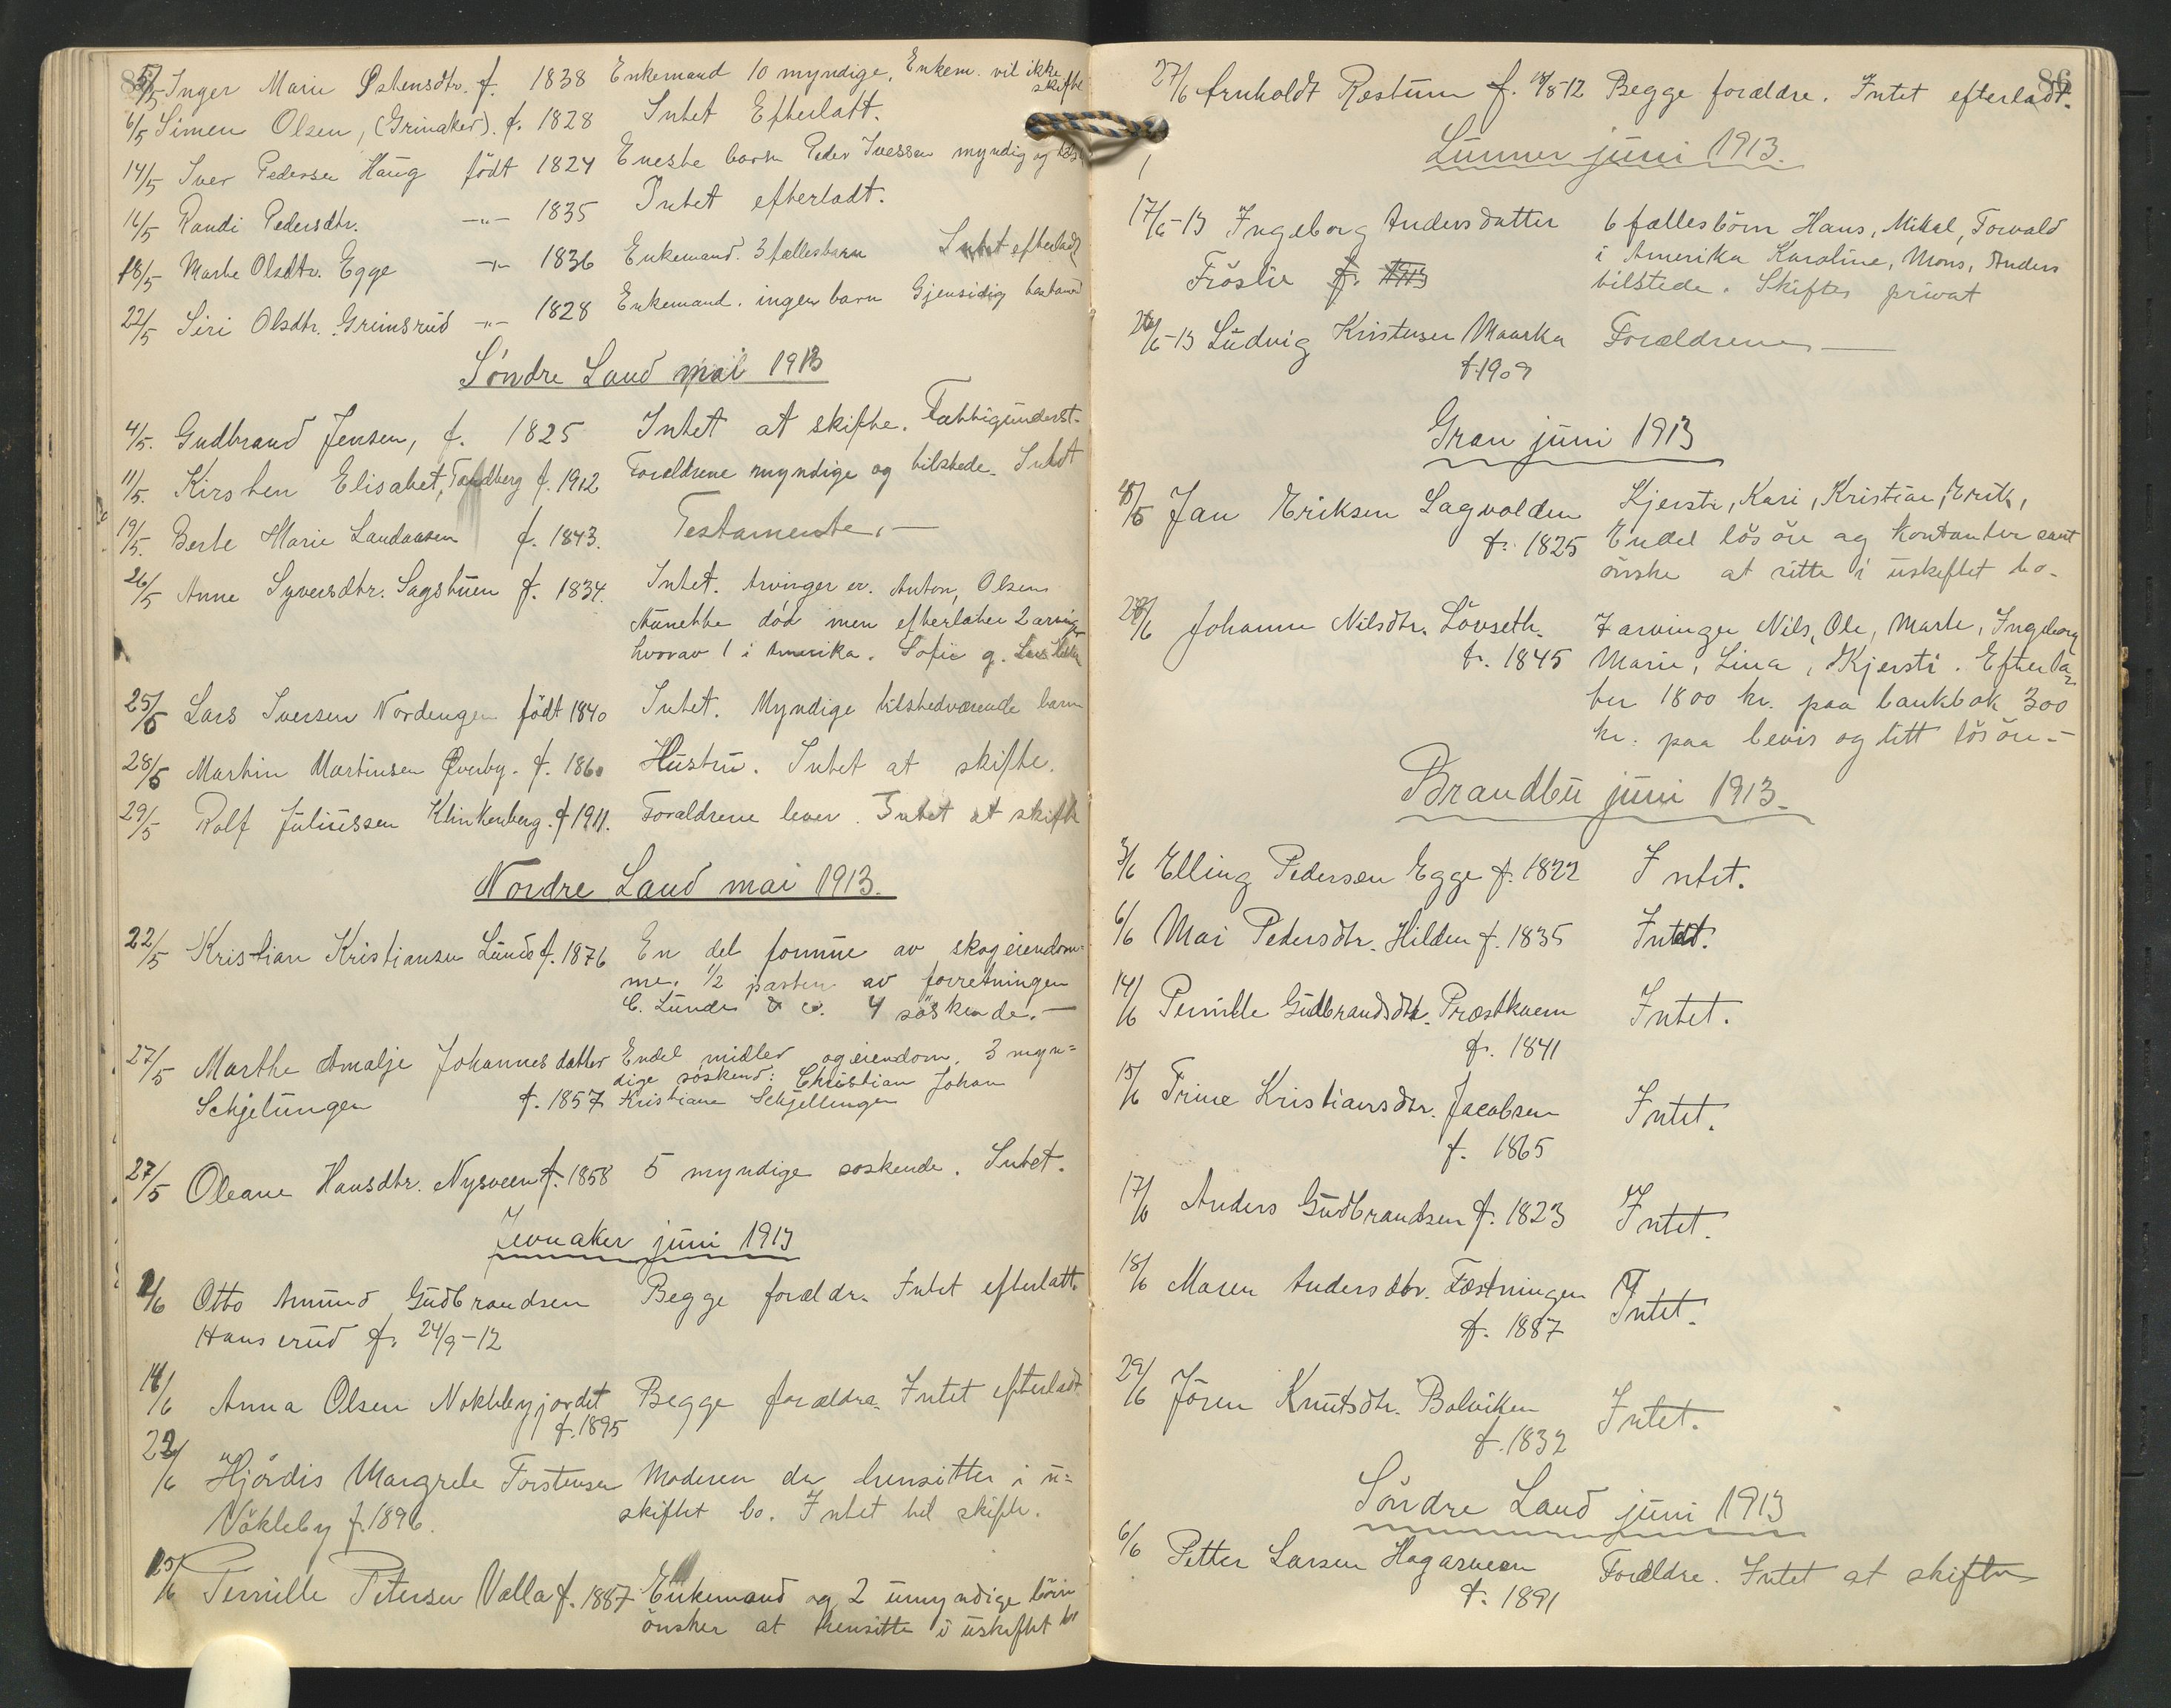 5/5 Inger Marie Østensdtr. f. 1838 Enkemand 10 myndige, Enkem. vil ikke skifte
6/5 Simen Olsen, (Grinaker). f. 1828 Intet Efterlatt.
14/5 Iver Pedersen Haug født 1824 Eneste barn Peder Iversen myndig og
16/5 Randi Pedersdtr. -"- 1835 Intet efterladt.
18/5 Marte Olsdtr. Egge -"- 1836 Enkemand. 3 fællesbarn Intet efterladt
22/5 Siri Olsdtr. Grimsrud -"- 1828 Enkemand. ingen barn Gjensidig
Söndre Land mai 1913
4/5. Gudbrand Jensen, f. 1825 Intet at skifte. Fattigunderst.
11/5. Kirsten Elisabet, Tandberg f. 1912 Foreldrene myndige og tilstede. Intet
19/5. Berte Marie Landaasen f. 1843. Testamente. —
26/5 Anne Syversdtr. Sagstuen f. 1834. Intet. Arvinger er. Anton, Olsen
Aunette död men efterlater 2 arvinger
hvorav 1 i Amerika. Sofie g.
25/5 Lars Iversen Nordengen födt 1840 Intet. Myndige tilstedværende barn
28/5 Martin Martinsen Øverby. f. 1860 Hustru. Intet at skifte.
29/5 Rolf Juliussen Klinkenberg. f 1911. Forældrene lever. Intet at skifte
Nordre Land mai 1913.
22/5 Kristian Kristiansen Lunde f. 1876 En del formue av skogeiendom-
me. 1/2 parten av forretningen
C. Lunde & co. 4 söskende. —
27/5 Marthe Amalje Johannesdatter Endel midler og eiendom. 3 myn=
dige söskend: Christian Johan
Schjelungen f. 1857 Kristiane Schjellungen
27/5 Oleane Hansdtr. Nysveen f. 1858 5 myndige soskende. Intet.
Jevnaker juni 1913
2/6 Otto Amund Gudbrandsen Begge foreldr. Intet efterlatt.
Hanserud f. 24/9-12
14/6 Anna Olsen Nokklebyjordet Begge forældre. Intet efterladt
f. 1895
22/6 Hjördis Margrete Torstensen Moderen der hensitter i u=
Nökleby f. 1896. skiftet bo. Intet til skifte.
15/6 Pernille Petersen Valla f. 1887 Enkemand og 2 umyndige börn
önsker at hensitte i uskiftet bo
86
27/6 Arnholdt Røstum f. 18/8-12 Begge forældre. Intet efterladt.
Lunner juni 1913.
17/6-13 Ingeborg Andersdatter 6 fællesbörn Hans, Mikal, Torvald
i Amerika Karoline, Mons, Anders
Fröslie f. 1913 tilstede. Skiftes privat
26/6-13 Ludvig Kristensen Maarka Forældrene —
f. 1909
Gran juni 1913
Jan Eriksen Sagvolden Kjersti, Kari, Kristian, Erik,
f. 1825 Endel lösöre og Kontanter samt
önske at sitte i uskiftet bo.
28/6 Johanne Nilsdtr. Lövseth. 7 arvinger Nils, Ole, Marte, Ingeborg
f. 1845 Marie, Lina, Kjersti. Efterla-
ter 1800 kr. paa bankbok 300
kr. paa bevis og litt lösöre. —
Brandbu juni 1913.
3/6 Elling Pedersen Egge f. 1822 Intet.
6/6 Mari Pedersdtr. Hilden f. 1835 Intet.
14/6 Pernille Gudbrandsdtr. Præstkvern Intet.
f. 1841
15/6 Trine Kristiansdtr. Jacobsen Intet.
f. 1865
17/6 Anders Gudbrandsen f. 1823 Intet.
18/6 Maren Andersdtr. Fæstningen Intet.
f. 1887
29/6 Jören Knutsdtr. Bolviken Intet.
f. 1832
Söndre Land juni 1913
6/6 Petter Larsen Hagasveen Foreldre. Intet at skifte
f. 1891